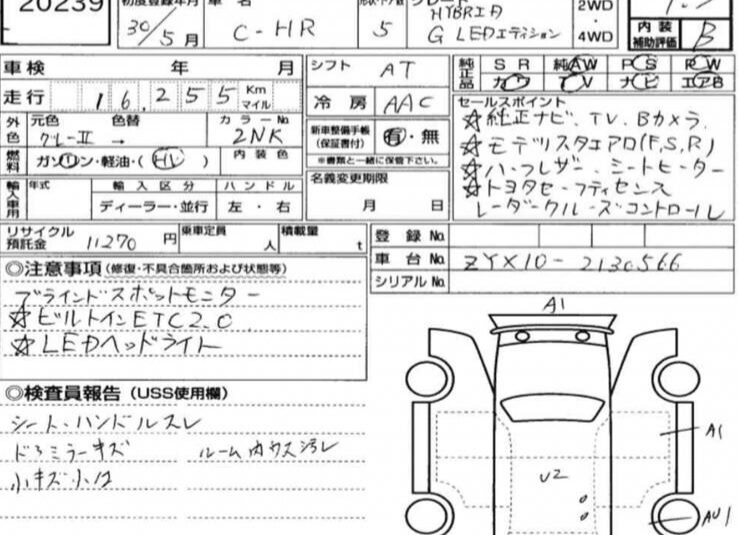 20239
初度登録年月
30/5月
車名
C-HR
5
HYBRID
G LEDエディション
2WD
・
4WD
内装
補助評価 B
車検 年 月
走行 16,255 Km マイル
シフト AT
冷房 AAC
純正品 SR 純AW PS PW
カワ TV ナビ エアB
外色 元色 色替 カラーNo.
グレーII → 2NK
燃料 ガソリン・軽油・( HV ) 内装色
新車整備手帳
(保証書付) 有・無
※書類と一緒に保管下さい。
名義変更期限
月 日
セールスポイント
☆純正ナビ、TV、Bカメラ
☆モデリスタエアロ(F,S,R)
☆ハーフレザー、シートヒーター
☆トヨタセーフティセンス
レーダークルーズコントロール
輸入車用 年式 輸入区分 ハンドル
ディーラー・並行 左・右
リサイクル
預託金 11270 円 乗車定員 人 積載量 t
登録 No.
車台 No. ZYX10-2130566
シリアル No.
◎注意事項 (修復・不具合箇所および状態等)
ブラインドスポットモニター
☆ビルトインETC2.0
☆LEDヘッドライト
◎検査員報告 (USS使用欄)
シート、ハンドルスレ
ドアミラーキズ ルーム内ウス汚レ
小キズ小凹
A1
A1
U2
AU1